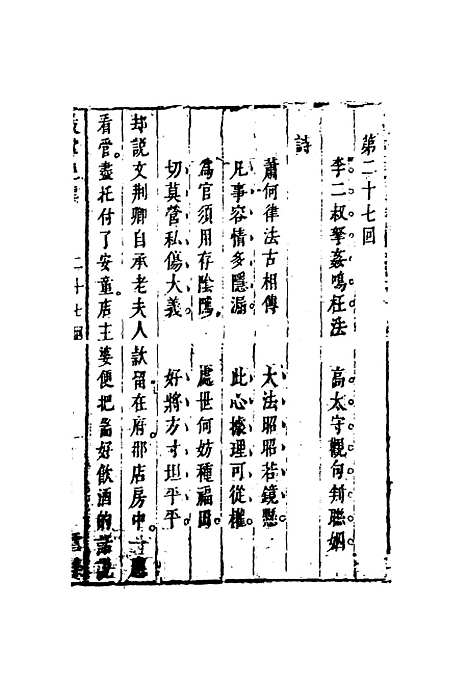 第二十七回
李二叔拏姦鳴枉法　高太守觀句判聯姻
詩
蕭何律法古相傳　大法昭昭若鏡懸
凡事容情多隱漏　此心據理可從權
爲官須用存陰隲　處世何妨種福田
切莫管私傷大義　好將方寸坦平平
却說文荆卿自承老夫人款留在府那店房中
看管盡托付了安童店主婆便把喬好飲酒的話說
二十七回